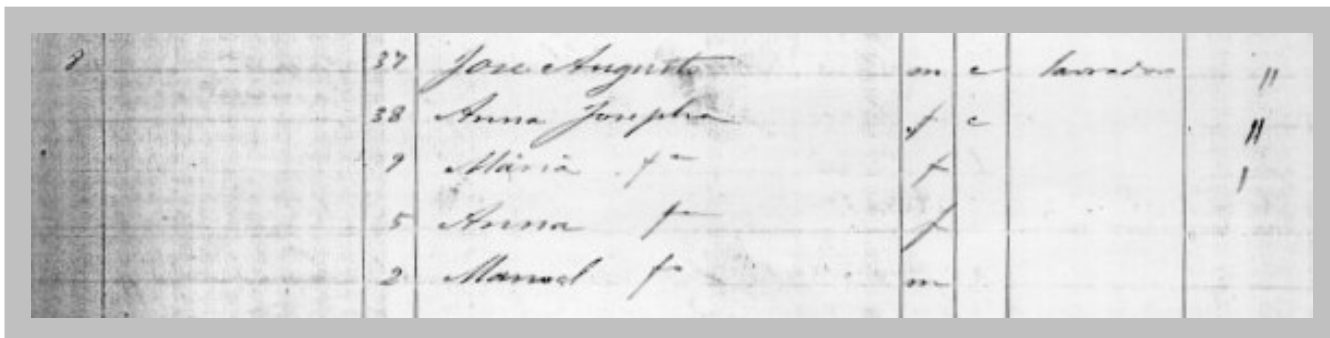 8 37 Jose Augusto m c lavrador "
38 Anna Josepha f c "
9 Maria fa f
5 Anna fa f
2 Manoel fo m